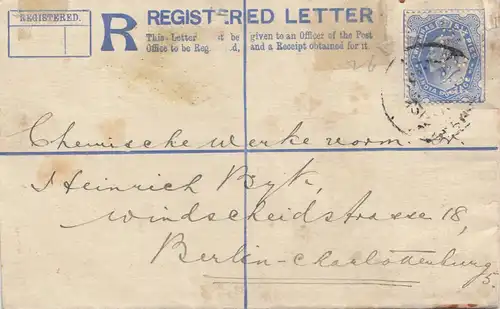 REGISTERED.
R
REGISTERED LETTER
This Letter must be given to an Officer of the Post
Office to be Registered, and a Receipt obtained for it.
Chemische Werke vorm.
Heinrich Byk,
Windscheidstrasse 18,
Berlin-Charlottenburg
5.